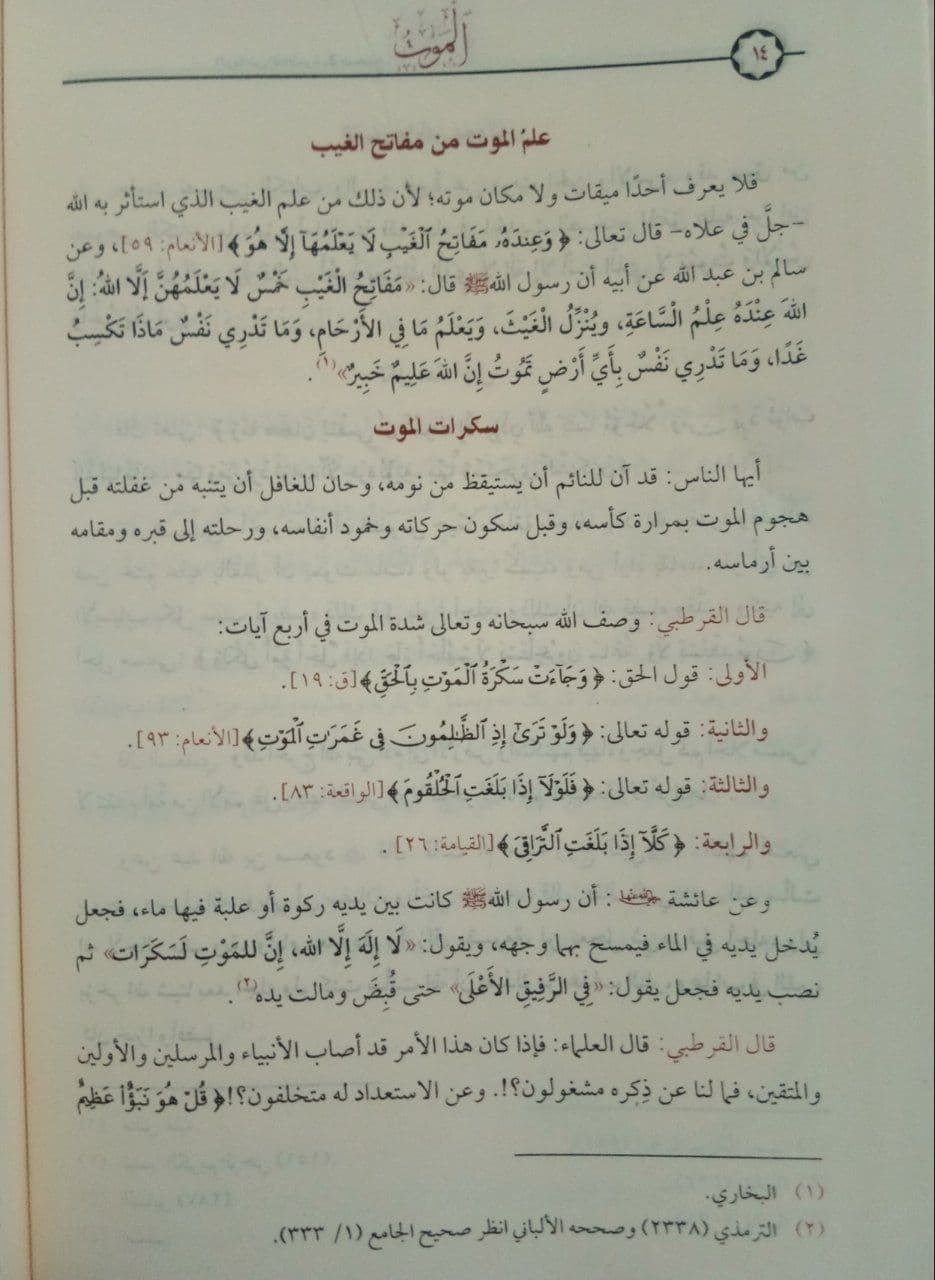 ١٤
الموت
علمُ الموت من مفاتح الغيب
فلا يعرف أحدًا ميقات ولا مكان موته؛ لأن ذلك من علم الغيب الذي استأثر به الله
-جلَّ في علاه- قال تعالى: ﴿ وَعِندَهُۥ مَفَاتِحُ ٱلْغَيْبِ لَا يَعْلَمُهَآ إِلَّا هُوَ ﴾ [الأنعام: ٥٩]، وعن
سالم بن عبد الله عن أبيه أن رسول الله ﷺ قال: «مَفَاتِحُ الْغَيْبِ خَمْسٌ لَا يَعْلَمُهُنَّ إَلَّا اللهُ: إِنَّ
اللهَ عِنْدَهُ عِلْمُ السَّاعَةِ، ويُنْزِّلُ الْغَيْثَ، وَيَعْلَمُ مَا فِي الأَرْحَامِ، وَمَا تَدْرِي نَفْسٌ مَاذَا تَكْسِبُ
غَدًا، وَمَا تَدْرِي نَفْسٌ بِأَيِّ أَرْضٍ تَمُوتُ إِنَّ اللهَ عَلِيمٌ خَبِيرٌ»(١).
سكرات الموت
أيها الناس: قد آن للنائم أن يستيقظ من نومه، وحان للغافل أن يتنبه من غفلته قبل
هجوم الموت بمرارة كأسه، وقبل سكون حركاته وخمود أنفاسه، ورحلته إلى قبره ومقامه
بين أرماسه.
قال القرطبي: وصف الله سبحانه وتعالى شدة الموت في أربع آيات:
الأولى: قول الحق: ﴿ وَجَآءَتْ سَكْرَةُ ٱلْمَوْتِ بِٱلْحَقِّ ﴾ [ق: ١٩].
والثانية: قوله تعالى: ﴿ وَلَوْ تَرَىٰٓ إِذِ ٱلظَّٰلِمُونَ فِى غَمَرَٰتِ ٱلْمَوْتِ ﴾ [الأنعام: ٩٣].
والثالثة: قوله تعالى: ﴿ فَلَوْلَآ إِذَا بَلَغَتِ ٱلْحُلْقُومَ ﴾ [الواقعة: ٨٣].
والرابعة: ﴿ كَلَّآ إِذَا بَلَغَتِ ٱلتَّرَاقِىَ ﴾ [القيامة: ٢٦] .
وعن عائشة رضي الله عنها : أن رسول الله ﷺ كانت بين يديه ركوة أو علبة فيها ماء، فجعل
يُدخل يديه في الماء فيمسح بهما وجهه، ويقول: «لَا إِلَهَ إِلَّا الله، إِنَّ للمَوْتِ لَسَكَرَات» ثم
نصب يديه فجعل يقول: «فِي الرَّفِيقِ الأَعْلَى» حتى قُبِضَ ومالت يده(٢).
قال القرطبي: قال العلماء: فإذا كان هذا الأمر قد أصاب الأنبياء والمرسلين والأولين
والمتقين، فما لنا عن ذِكره مشغولون؟!. وعن الاستعداد له متخلفون؟!﴿ قُلْ هُوَ نَبَؤٌا۟ عَظِيمٌ
(١) البخاري.
(٢) الترمذي (٢٣٣٨) وصححه الألباني انظر صحيح الجامع (١/ ٣٣٣).